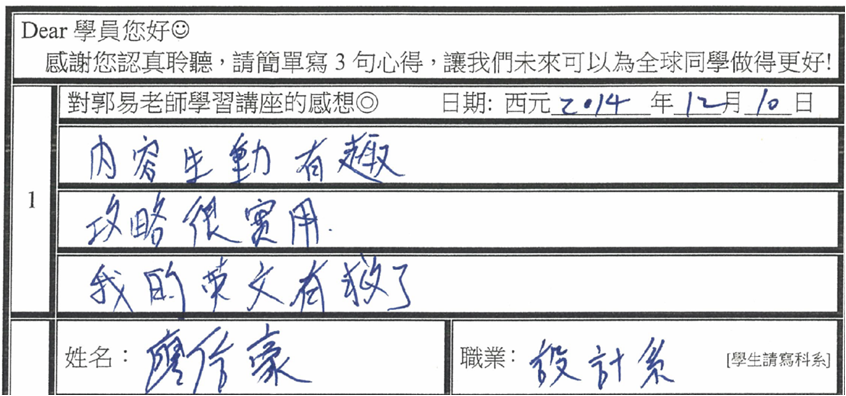 Dear 學員您好☺
感謝您認真聆聽，請簡單寫 3 句心得，讓我們未來可以為全球同學做得更好!
1
對郭易老師學習講座的感想◎ 日期: 西元 2014 年 12 月 10 日
內容生動有趣
攻略很實用.
我的英文有救了
姓名： 廖信豪 職業: 設計系 [學生請寫科系]